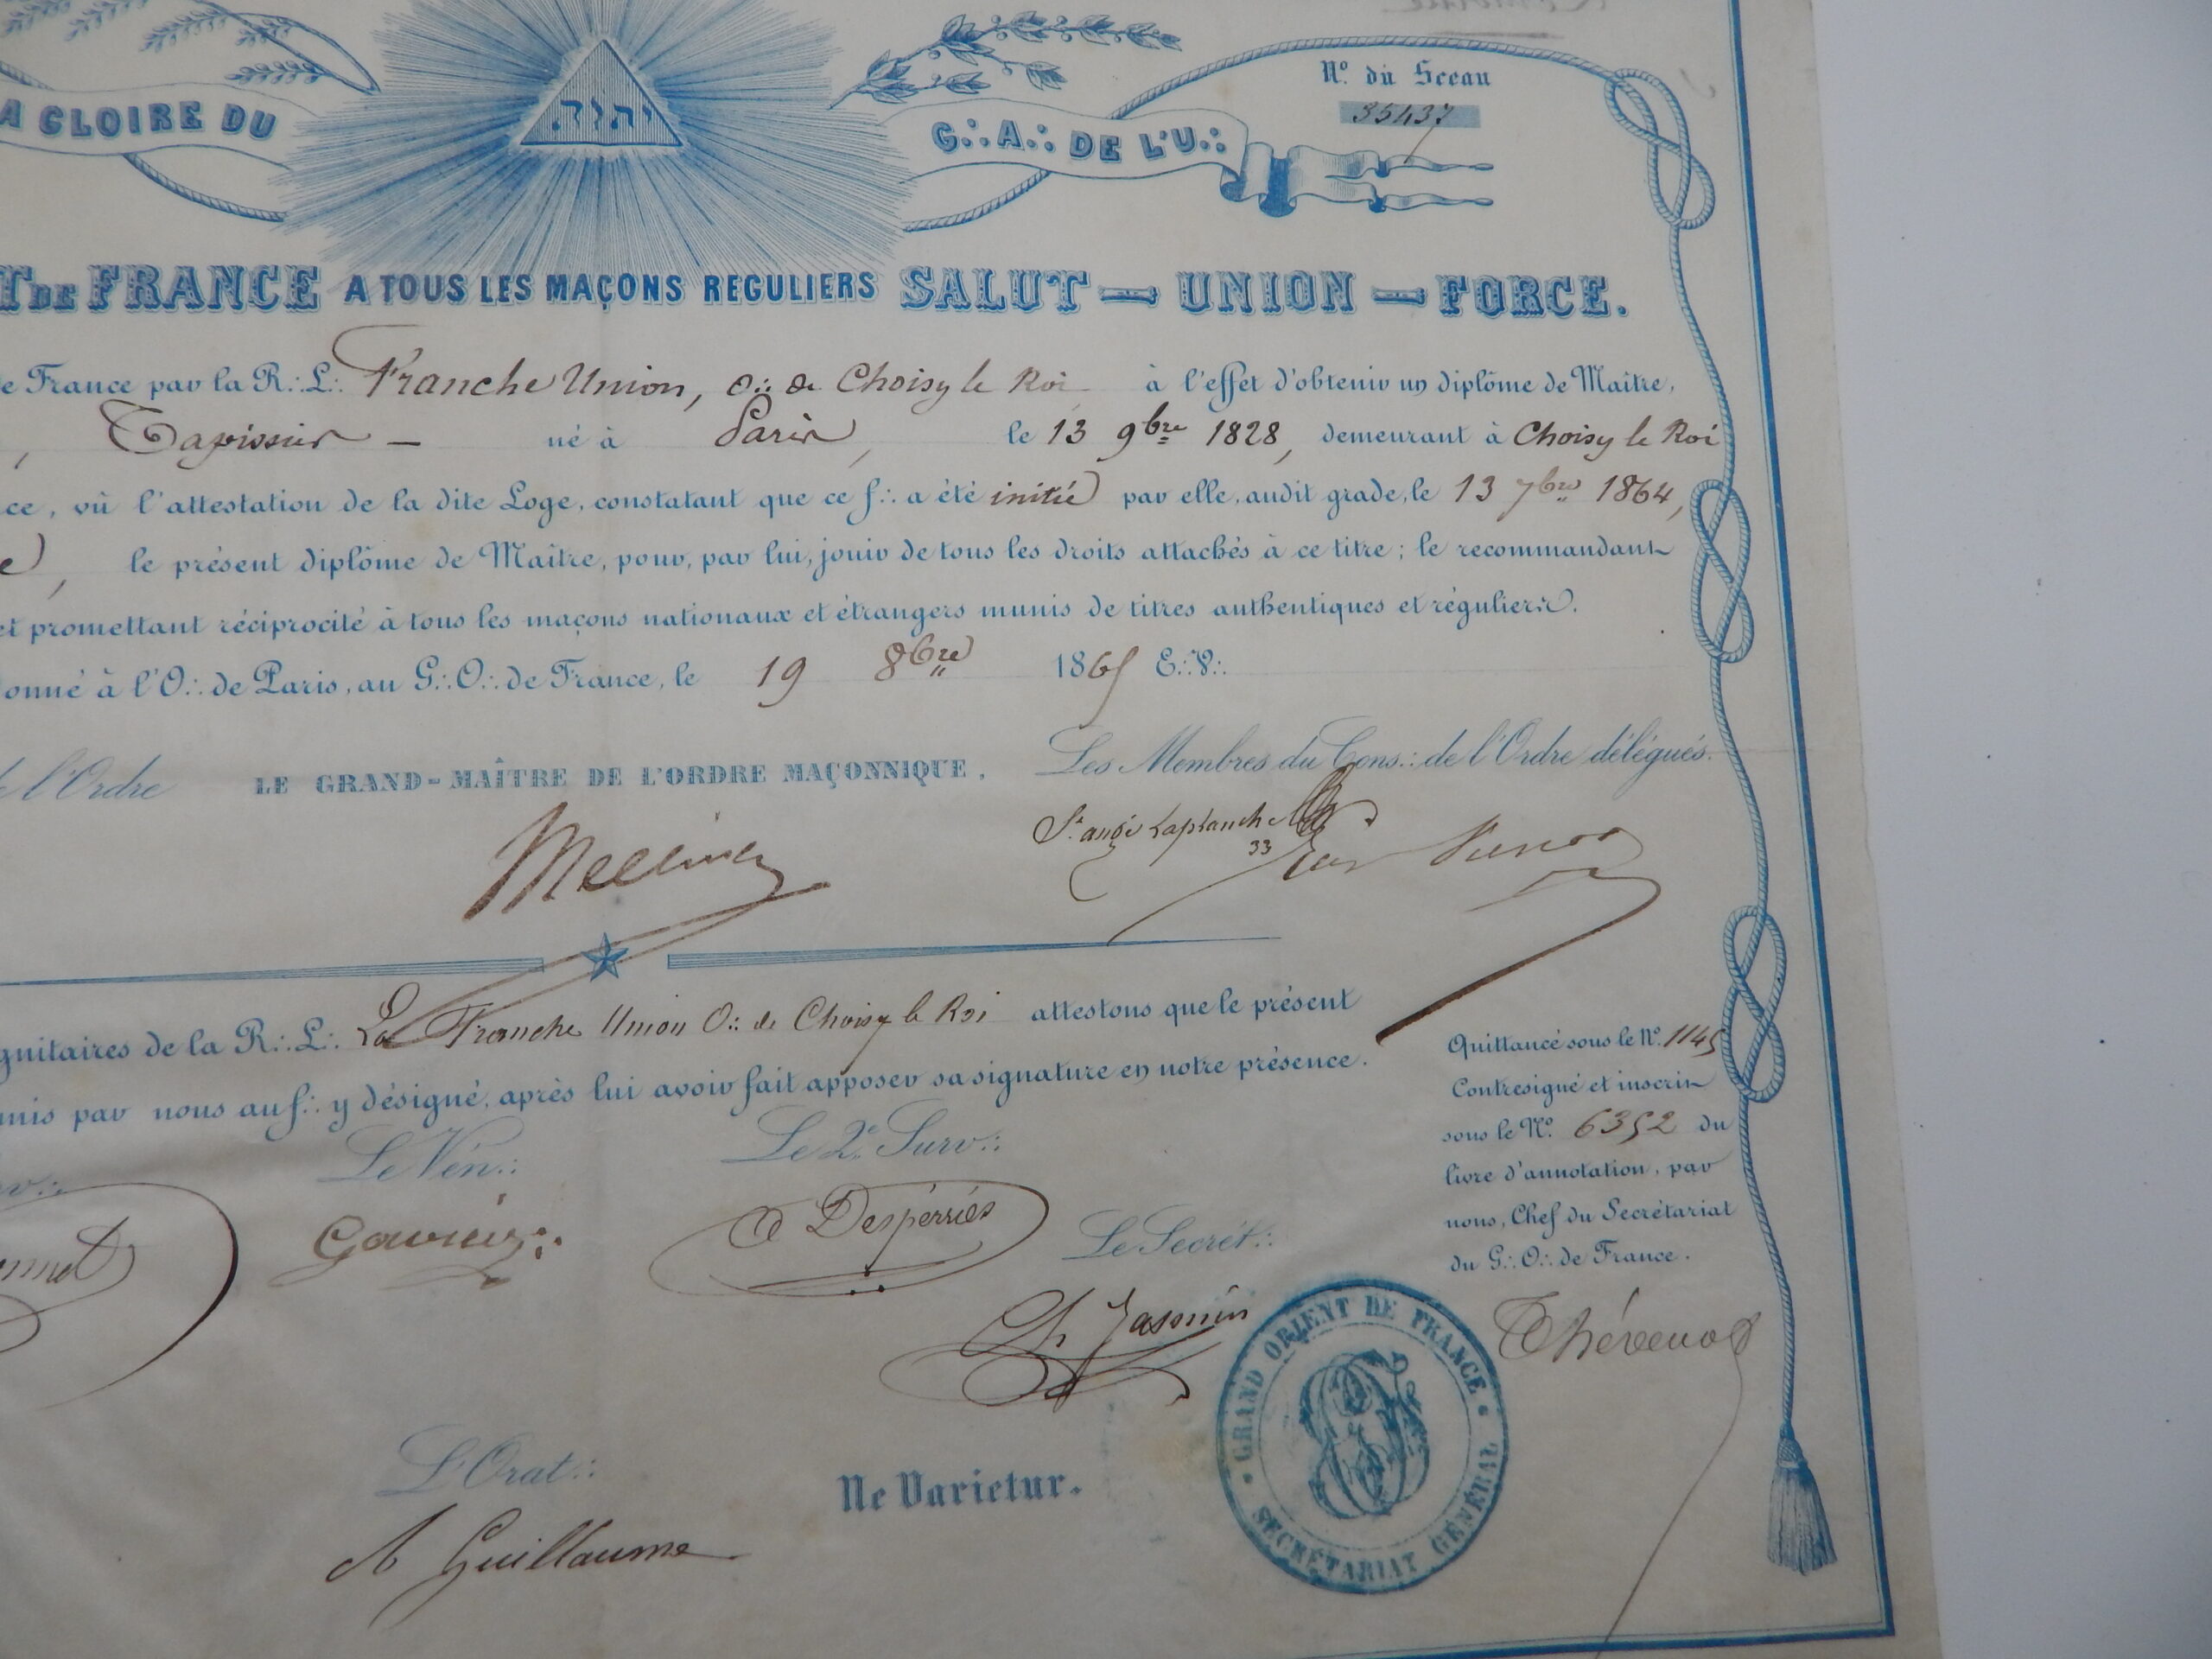 A GLOIRE DU
יהוה
G∴A∴ DE L'U∴
N.º du Sceau
35437
T DE FRANCE A TOUS LES MAÇONS REGULIERS SALUT — UNION — FORCE.
e France par la R∴L∴ Franche Union, O∴ de Choisy le Roi à l'effet d'obtenir un diplôme de Maître,
, Tapissier — né à Paris, le 13 9bre 1828, demeurant à Choisy le Roi
ce, vû l'attestation de la dite Loge, constatant que ce f∴ a été initié par elle, audit grade, le 13 7bre 1864,
e, le présent diplôme de Maître, pour, par lui, jouir de tous les droits attachés à ce titre; le recommandant
et promettant réciprocité à tous les maçons nationaux et étrangers munis de titres authentiques et réguliers.
onné à l'O∴ de Paris, au G∴O∴ de France, le 19 8bre 1865 E∴V∴
e l'Ordre LE GRAND-MAÎTRE DE L'ORDRE MAÇONNIQUE, Les Membres du Cons∴ de l'Ordre délégués.
Mellinet
St. Ange Laplanche
33
gnitaires de la R∴L∴ La Franche Union O∴ de Choisy le Roi attestons que le présent
mis par nous au f∴ y désigné, après lui avoir fait apposer sa signature en notre présence.
Quittancé sous le Nº. 1145
Contresigné et inscrit
sous le Nº. 6352 du
livre d'annotation, par
nous, Chef du Secrétariat
du G∴O∴ de France.
Thévenot
Le Vén∴
Le 2e Surv∴
Desperriés
Le Secrét∴
Ch Jasmin
GRAND ORIENT DE FRANCE
SECRÉTARIAT GÉNÉRAL
L'Orat∴
A Guillaume
Ne Varietur.